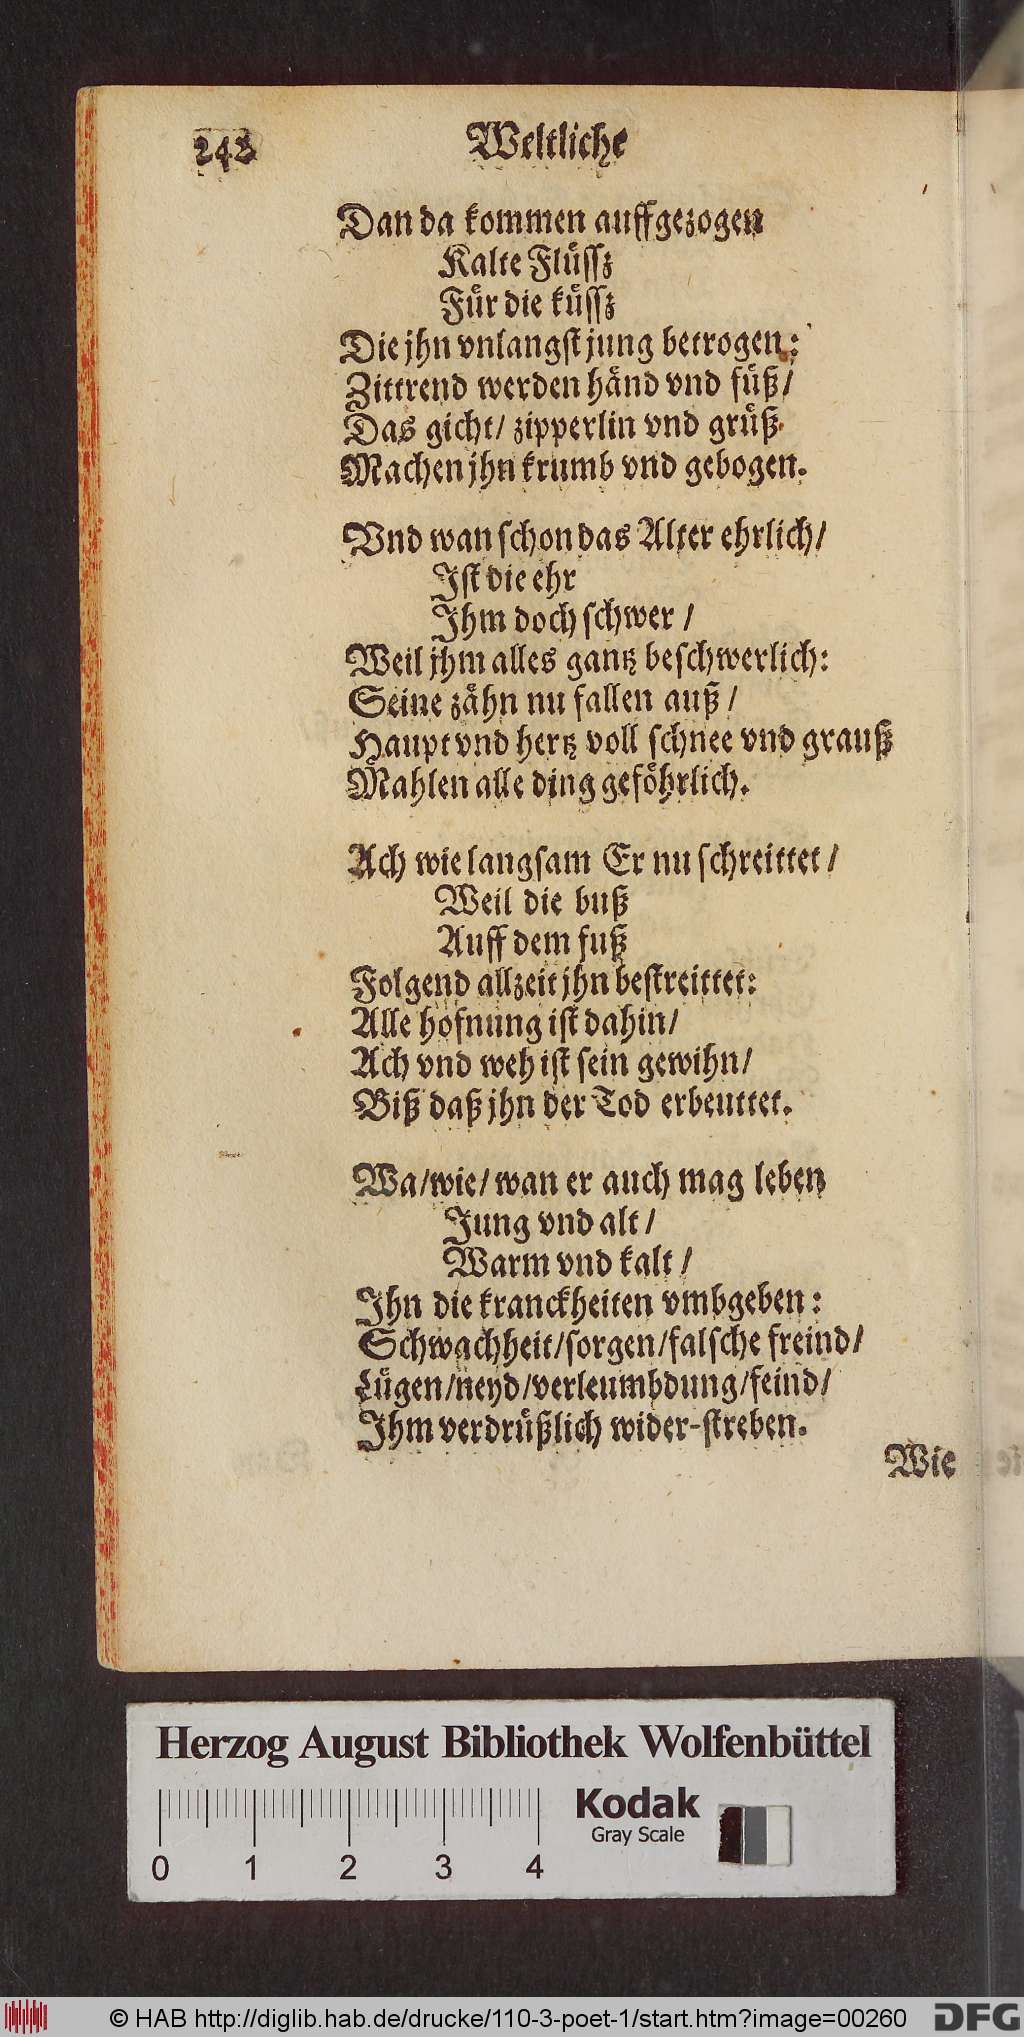 242 Weltliche
Dan da kommen auffgezogen
Kalte Flüſſz
Für die küſſz
Die jhn vnlangſt jung betrogen:
Zittrend werden händ vnd füß/
Das gicht/ zipperlin vnd grüß
Machen jhn krumb vnd gebogen.
Vnd wan ſchon das Alter ehrlich/
Iſt die ehr
Ihm doch ſchwer /
Weil jhm alles gantz beſchwerlich:
Seine zähn nu fallen auß /
Haupt vnd hertz voll ſchnee vnd grauß
Mahlen alle ding geföhrlich.
Ach wie langſam Er nu ſchreittet /
Weil die buß
Auff dem fuß
Folgend allzeit jhn beſtreittet:
Alle hofnung iſt dahin/
Ach vnd weh iſt ſein gewihn/
Biß daß jhn der Tod erbeuttet.
Wa/wie/ wan er auch mag leben
Jung vnd alt /
Warm vnd kalt /
Ihn die kranckheiten vmbgeben :
Schwachheit/ſorgen/falſche freind/
Lügen/neyd/verleumbdung/feind/
Ihm verdrüßlich wider-ſtreben.
Wie
Herzog August Bibliothek Wolfenbüttel
Kodak
Gray Scale
0 1 2 3 4
© HAB http://diglib.hab.de/drucke/110-3-poet-1/start.htm?image=00260
DFG